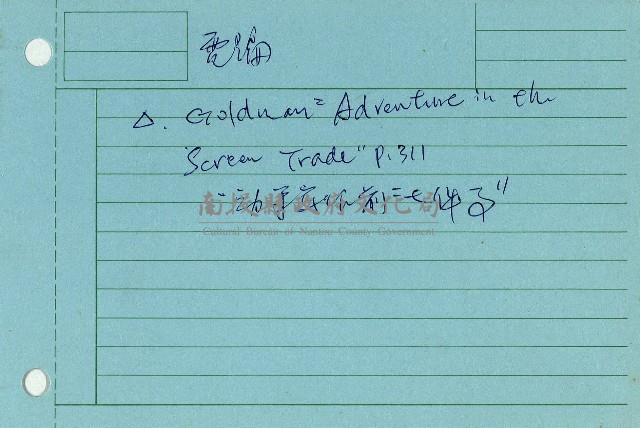 電編
△. Goldman "Adventure in the
Screen Trade" p.311
"動手寫作前三七件事"
南投縣政府文化局
Cultural Bureau of Nantou County Government